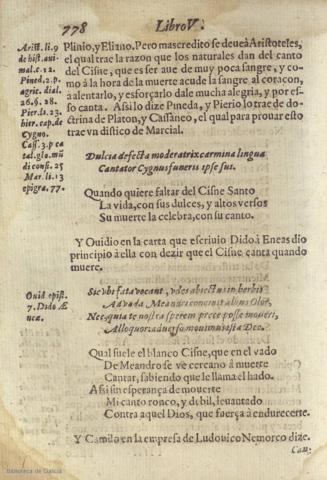 778 Libro V.
Arist. li. 9
de hist. ani-
mal. c. 12.
Pined. 2. p.
agric. dial.
26. §. 28.
Pier. li. 23.
hier. cap. de
Cygno.
Cass. 3. p ca
tal. glo. mũ
di consi. 25
Mar. li. 13
epigra. 77.
Plinio, y Eliano. Pero mas credito se deue à Aristoteles,
el qual trae la razon que los naturales dan del canto
del Cisne, que es ser aue de muy poca sangre, y co-
mo à la hora de la muerte acude la sangre al coraçon,
a alentarlo, y esforçarlo dale mucha alegria, y por es-
so canta. Assi lo dize Pineda, y Pierio lo trae de do-
ctrina de Platon, y Cassaneo, el qual para prouar esto
trae vn distico de Marcial.
Dulcia defecta moderatrix carmina lingua
Cantator Cygnus funeris ipse sui.
Quando quiere faltar del Cisne Santo
La vida, con sus dulces, y altos versos
Su muerte la celebra, con su canto.
Y Ouidio en la carta que escriuio Dido à Eneas dio
principio à ella con dezir que el Cisne canta quando
muere.
Ouid epist.
7. Dido Æ
neæ.
Sic vbi fata vocant, vdis abiectus in herbis
Ad vada Meandri concinit albus Olor,
Nec, quia te nostra sperem prece posse moueri,
Alloquor aduerso mouimus ista Deo.
Qual suele el blanco Cisne, que en el vado
De Meandro se vè cercano à muerte
Cantar, sabiendo que le llama el hado.
Assi sin esperança de mouerte
Mi canto ronco, y debil, leuantado
Contra aquel Dios, que fuerça à endurecerte.
Y Camilo en la empresa de Ludouico Nemorco dize.
Biblioteca de Galicia